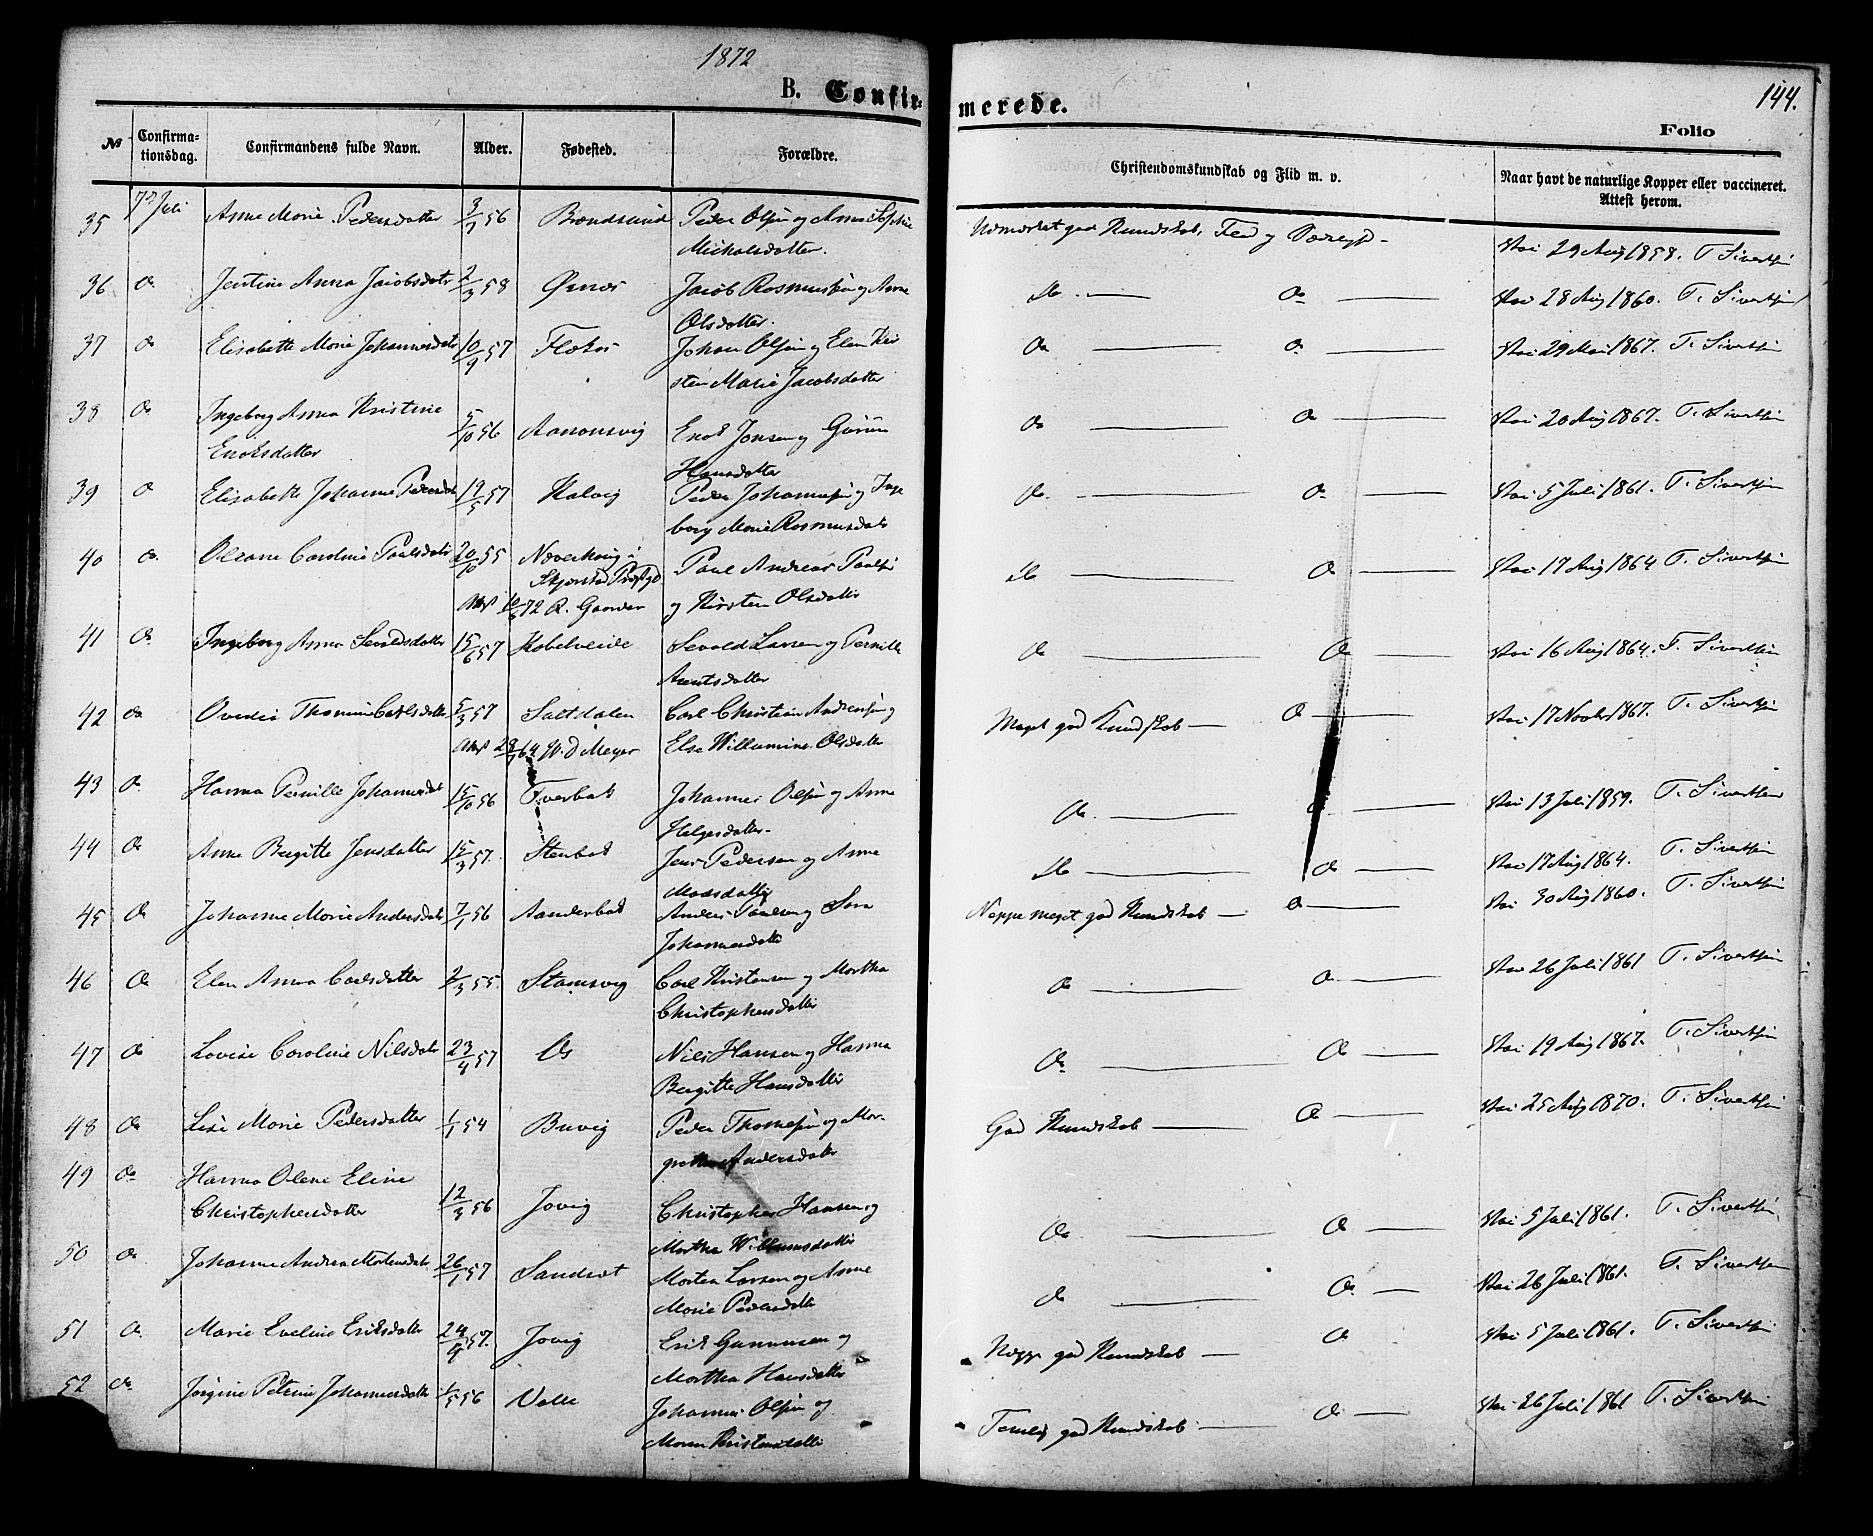 1872
B. Confir-
merede.
144.
Folio
№
Confirma-
tionsdag.
Confirmandens fulde Navn.
Alder.
Fødested.
Forældre.
Christendomskundskab og Flid m. v.
Naar havt de naturlige Kopper eller vaccineret.
Attest herom.
35 7de Juli Anne Marie Pedersdatter 3/1 56 Brændsund Peder Olsen og Anna Sophie
Michalsdatter.
Udmærket god Kundskab, Flid og
Vac 29 Aug 1858. T. Sivertsen
36 do Jentine Anna Jacobsdatr 2/3 58 Øsnes Jacob Rasmussen og Anne
Olsdatter.
do do Vac 28 Aug 1860. T. Sivertsen
37 do Elisabeth Marie Johannesdatr 10/9 57 Johan Olsen og Elen Kir
sten Marie Jacobsdatter
do do Vac 29 Mai 1867. T. Sivertsen
38 do Ingeborg Anna Kristine
Enoksdatter 5/10 56 Aaronsvig Enok Jonsen og Gurine
Hansdatter
do do Vac 20 Aug 1867. T. Sivertsen
39 do Elisabeth Johanne Pedersdatr 19/5 57 Kalvig Peder Johannesen og Inge
borg Marie Rasmusdatr
do do Vac 5 Juli 1861. T. Sivertsen
40 do Olsane Caroline Paulsdatr 20/10 55 i
Skjerstad Præstgd Paul Andreas Paulsen
Att 72 R. Gaarder og Kirsten Olsdatter
do do Vac 17 Aug 1864 T. Sivertsen
41 do Ingeborg Anna Sevaldsdatter 15/6 57 Kobelveide Sevald Larsen og Pernille
Arentsdatter
do do Vac 16 Aug 1864. T. Sivertsen
42 do Ovedia Thomine Carlsdatter 5/3 57 Saltdalen Carl Christian Andreasen og
Att 64 W. D Meyer Else Willumine Olsdatter
Meget god Kundskab do Vac 17 Novbr 1867. T. Sivertsen
43 do Hanna Pernille Johannesdat 15/10 56 Tverbak Johannes Olsen og Anne
Helgesdatter
do do Vac 13 Juli 1859. T. Sivertsen
44 do Anne Bergitte Jensdatter 15/3 57. Stenbak Jens Pedersen og Anne
Madsdatter
do do Vac 17 Aug 1864. T. Sivertsen
45 do Johanne Marie Andersdatr 7/1 56 Aanderbak Anders Paulsen og Sara
Johannesdatter
Neppe meget god Kundskab do Vac 30 Aug 1860. T. Sivertsen
46 do Elen Anna Carlsdatter 2/3 55. Stamsvig Carl Kristensen og Martha
Christophersdatter
do do Vac 26 Juli 1861 T. Sivertsen
47 do Lovise Caroline Nilsdatr 23/4 57 Os Nils Hansen og Hanna
Bergitte Hansdatter
do do Vac 19 Aug 1867. T. Sivertsen
48 do Lise Marie Pedersdatter 1/1 54 Buvig Peder Thomesen og Mar-
grethe Andersdatr
God Kundskab do Vac 25 Aug 1870. T. Sivertsen
49 do Hanna Olene Eline
Christophersdatter 12/3 56 Jovig Christopher Hansen og
Martha Willumsdatter
do do Vac 5 Juli 1861. T. Sivertsen
50 do Johanne Andrea Mortensdatr. 26/1 57 Sandvat Morten Larsen og Anne
Marie Pedersdatter
do do Vac 26 Juli 1861. T. Sivertsen
51 do Marie Eveline Eriksdatter 24/9 57. Jovig Erik Gunnarsen og
Martha Hansdatter
Neppe god Kundskab do Vac 5 Juli 1861. T. Sivertsen
52 do Jørgine Petrine Johannesdatr 1/5 56 Valle Johannes Olsen og
Maren Kristensdatter
Temlig god Kundskab do Vac 26 Juli 1861 T. Sivertsen